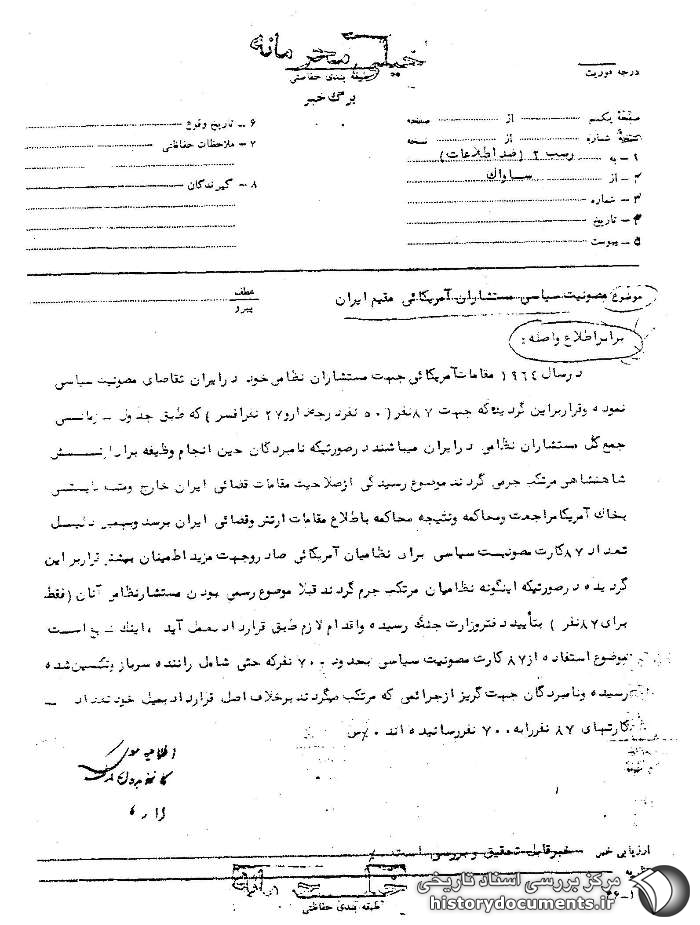 خیلی محرمانه
طبقه بندی حفاظتی
برگ خبر
درجه فوریت
صفحه یکم از صفحه
نسخه شماره از نسخه
۱ – به رست ۲ (ضد اطلاعات)
۲ – از ساواك
۳ – شماره
۴ – تاریخ
۵ – پیوست
۶ – تاریخ وقوع
۷ – ملاحظات حفاظتی
۸ – گیرندگان
موضوع مصونیت سیاسی مستشاران آمریکائی مقیم ایران
عطف
پیرو
برابر اطلاع واصله :
در سال ۱۹۶۴ مقامات آمریکائی جهت مستشاران نظامی خود در ایران تقاضای مصونیت سیاسی
نموده و قرار بر این گردیده که جهت ۸۷ نفر (۵۰ نفر درجه دار و ۲۷ نفر افسر) که طبق جدول
جمع کل مستشاران نظامی در ایران میباشند در صورتیکه نامبردگان حین انجام وظیفه برابر ارتش
شاهنشاهی مرتکب جرمی گردند موضوع رسیدگی از صلاحیت مقامات قضائی ایران خارج و متهم بایستی
بخاك آمریکا مراجعت و محاکمه و نتیجه محاکمه باطلاع مقامات ارتش و قضائی ایران برسد
تعداد ۸۷ کارت مصونیت سیاسی برای نظامیان آمریکائی صادر و جهت مزید اطمینان بیشتر قرار بر این
گردیده در صورتیکه اینگونه نظامیان مرتکب جرم گردند قبلا موضوع رسمی بودن مستشار نظامی آنان (فقط
برای ۸۷ نفر) بتأیید دفتر وزارت جنگ رسیده و اقدام لازم طبق قرارداد بعمل آید ، اینك است
موضوع استفاده از ۸۷ کارت مصونیت سیاسی بحدود ۷۰۰ نفر که حتی شامل راننده سرباز و تکنسین شده
رسیده و نامبردگان جهت گریز از جرائمی که مرتکب میگردند بر خلاف اصل قرارداد بمیل خود تعداد –
کارتهای ۸۷ نفر را به ۷۰۰ نفر رسانیده اند .
ارزیابی خبر خبر قابل تحقیق و بررسی است .
طبقه بندی حفاظتی
مرکز بررسی اسناد تاریخی
historydocuments.ir